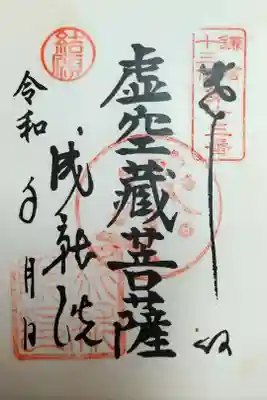 鎌倉
十三佛第十三番
奉拝
虚空蔵菩薩
結願
成就院
令和 年 月 日